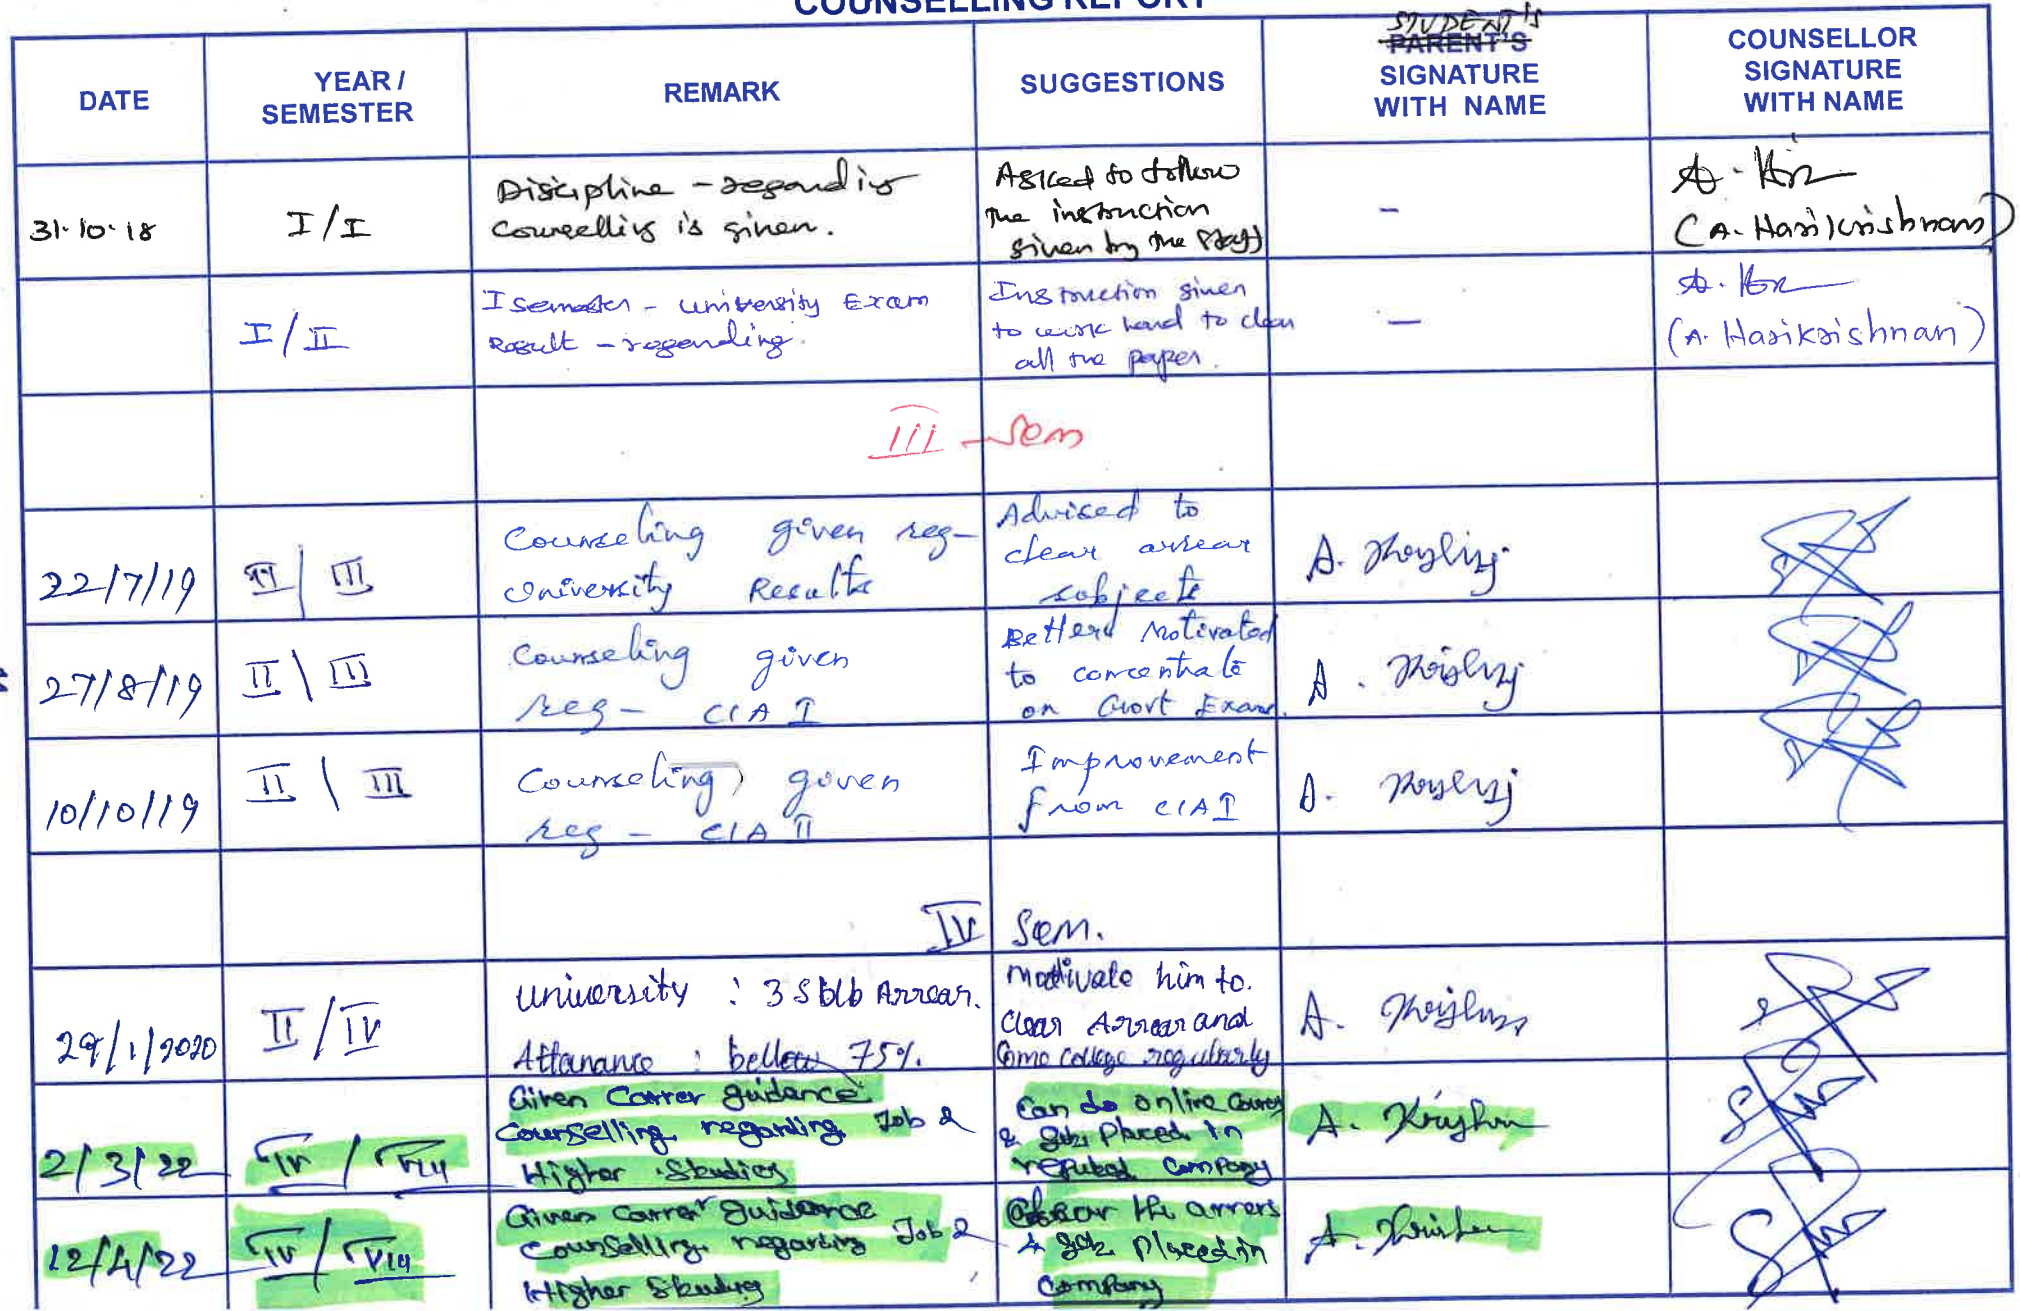 COUNSELLING REPORT
DATE
YEAR / SEMESTER
REMARK
SUGGESTIONS
STUDENT'S
PARENT'S
SIGNATURE
WITH NAME
COUNSELLOR
SIGNATURE
WITH NAME
31.10.18
I/I
Discipline - regarding
Counselling is given.
Asked to follow
the instruction
given by the staff
-
(A. Harikrishnan)
I/II
I semester - university Exam
Result - regarding.
Instruction given
to work hard to clear
all the paper.
-
(A. Harikrishnan)
III - Sem
22/7/19
II/III
Counseling given reg-
University Results
Advised to
clear arrear
subjects
27/8/19
II \ III
Counseling given
reg - CIA I
Motivated
to concentrate
on Govt Exam.
10/10/19
II \ III
Counseling given
reg - CIA II
Improvement
from CIA I
IV Sem.
29/1/2020
II/IV
university : 3 Arrear.
Attanance : bellow 75%.
motivate him to.
clear Arrear and
come college regularly
2/3/22
IV / VIII
Given Carrer guidance
Counselling regarding Job &
Higher Studies
Can do online
& get Placed in
reputed Company
12/4/22
IV / VIII
Given Carrer Guidance
Counselling regarding Job &
Higher Studies
Clear the arrers
& get Placed in
Company